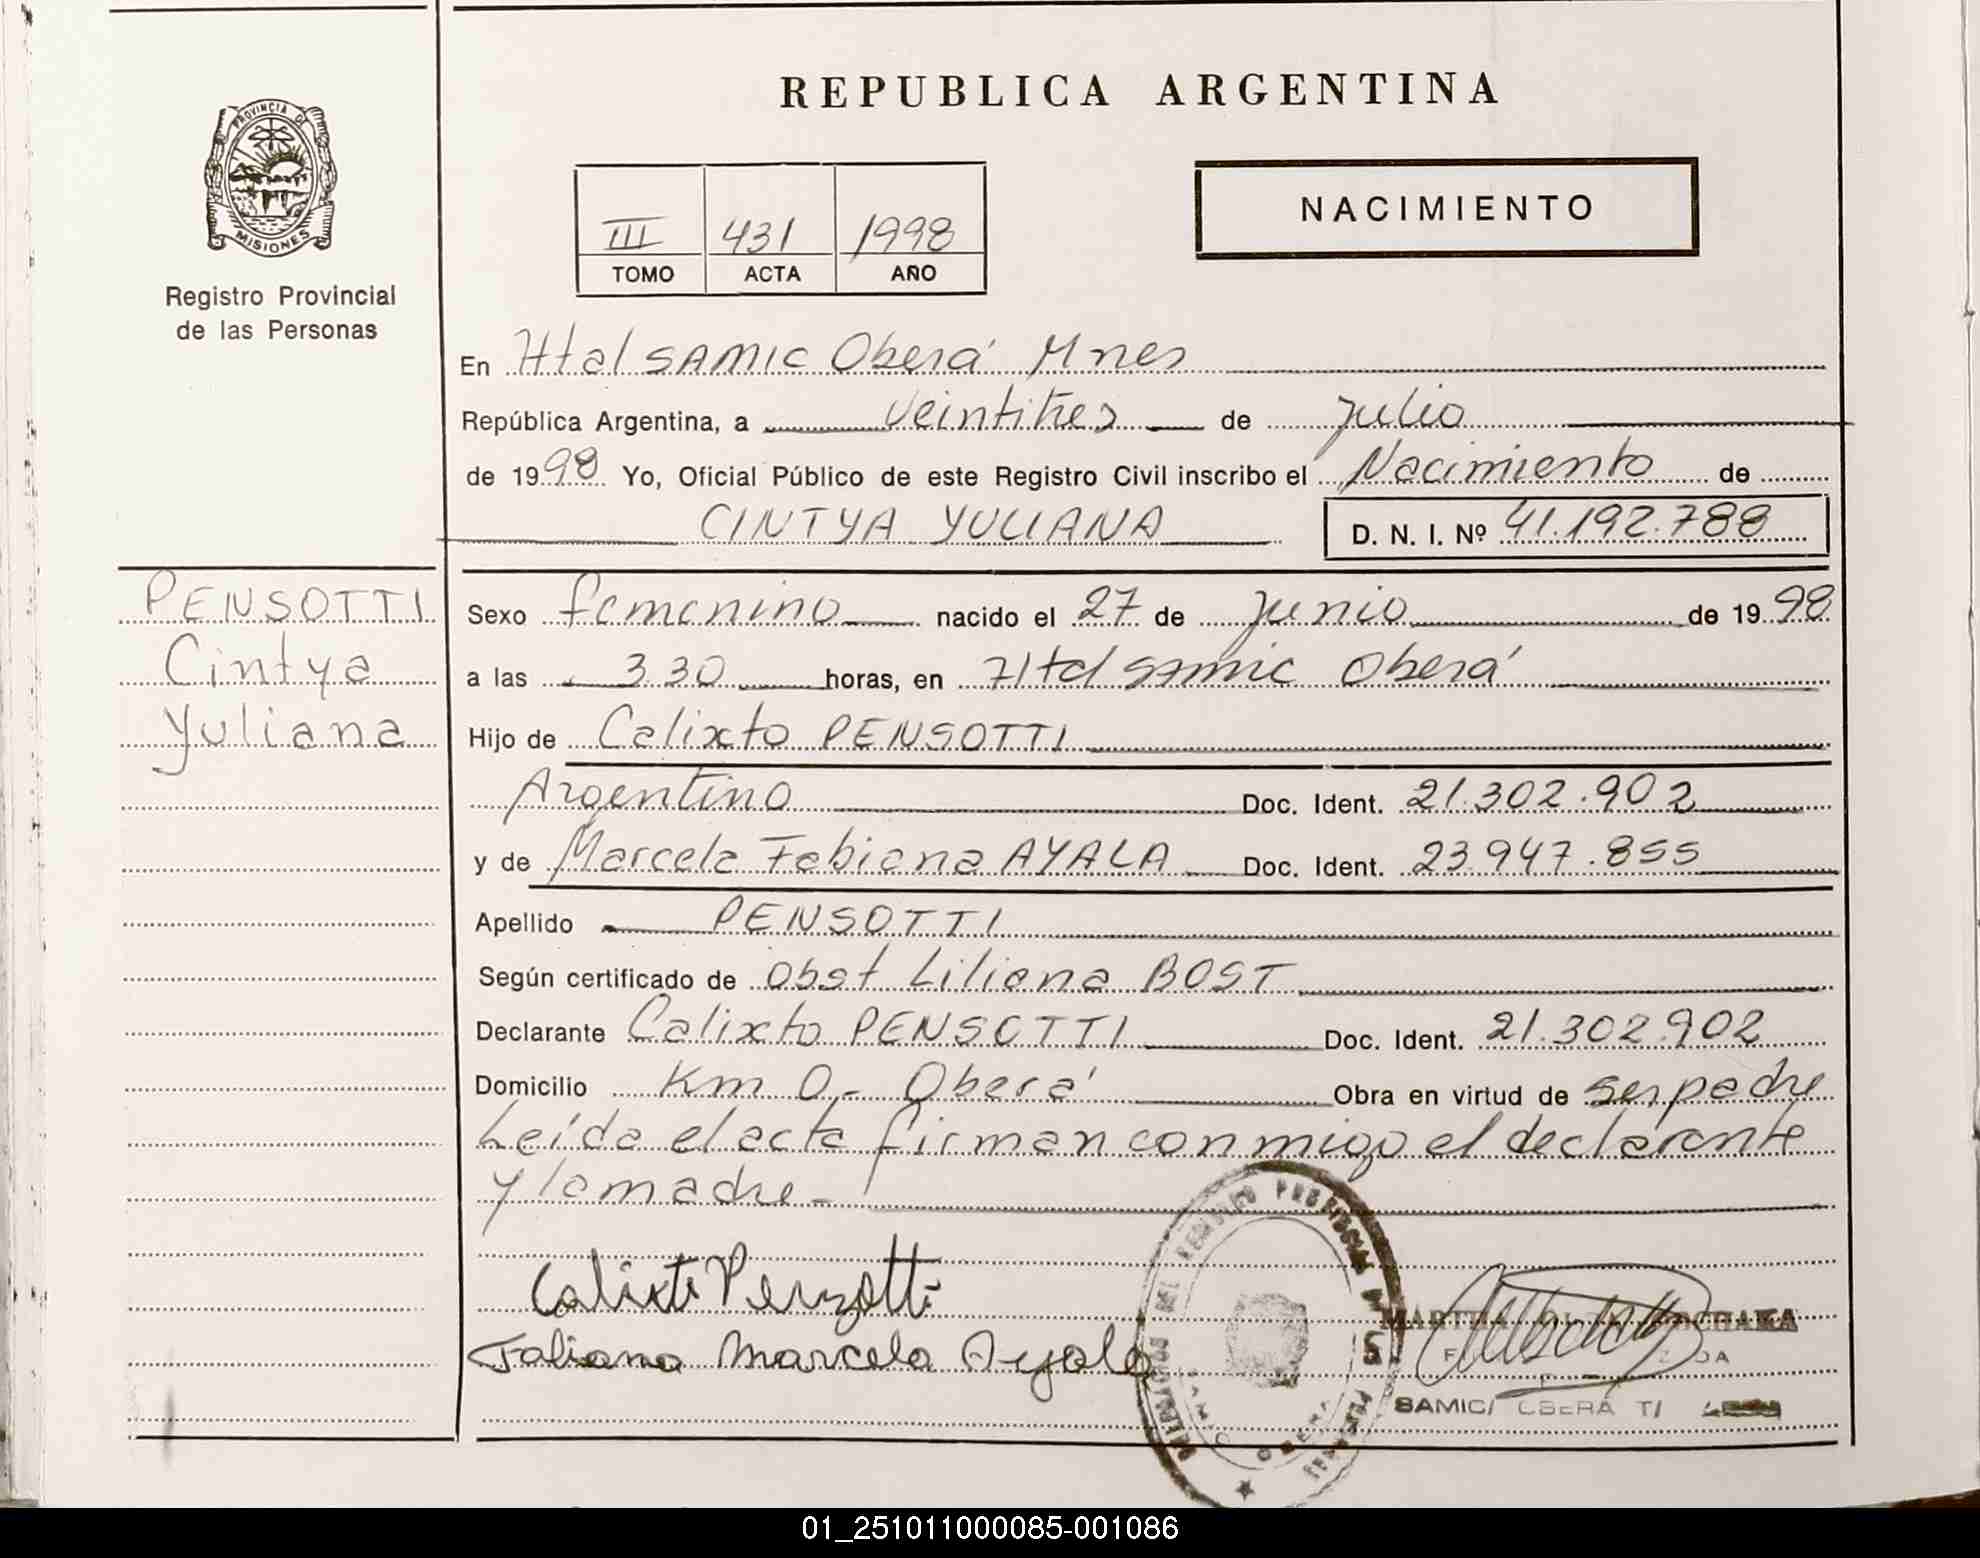 REPUBLICA ARGENTINA
PROVINCIA DE
MISIONES
Registro Provincial
de las Personas
III 431 1998
TOMO ACTA AÑO
NACIMIENTO
En Htal SAMIC Oberá Mnes
República Argentina, a veintitres de julio
de 1998 Yo, Oficial Público de este Registro Civil inscribo el Nacimiento de
CINTYA YULIANA D. N. I. Nº 41.192.788
PENSOTTI
Cintya
Yuliana
Sexo femenino nacido el 27 de junio de 1998
a las 3.30 horas, en Htal SAMIC Oberá
Hijo de Calixto PENSOTTI
Argentino Doc. Ident. 21.302.902
y de Marcela Fabiana AYALA Doc. Ident. 23.947.855
Apellido PENSOTTI
Según certificado de Obst Liliana BOST
Declarante Calixto PENSOTTI Doc. Ident. 21.302.902
Domicilio Km 0- Oberá Obra en virtud de ser padre
Leída el acta firman conmigo el declarante
y la madre-
Calixto Penzotti
Fabiana Marcela Ayala
REGISTRO PROVINCIAL DE LAS PERSONAS
MISIONES
SAMIC OBERA
01_251011000085-001086